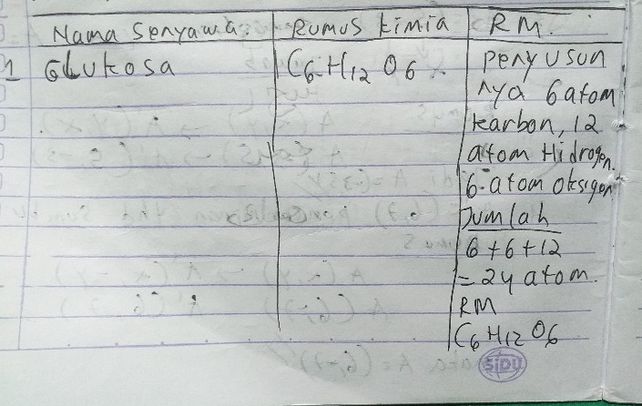 Nama Senyawa Rumus kimia RM.
1 Glukosa C6H12O6 penyusun
nya 6 atom
karbon, 12
atom Hidrogen,
6 atom oksigen
Jumlah
6+6+12
= 24 atom
RM
C6H12O6
SIDU